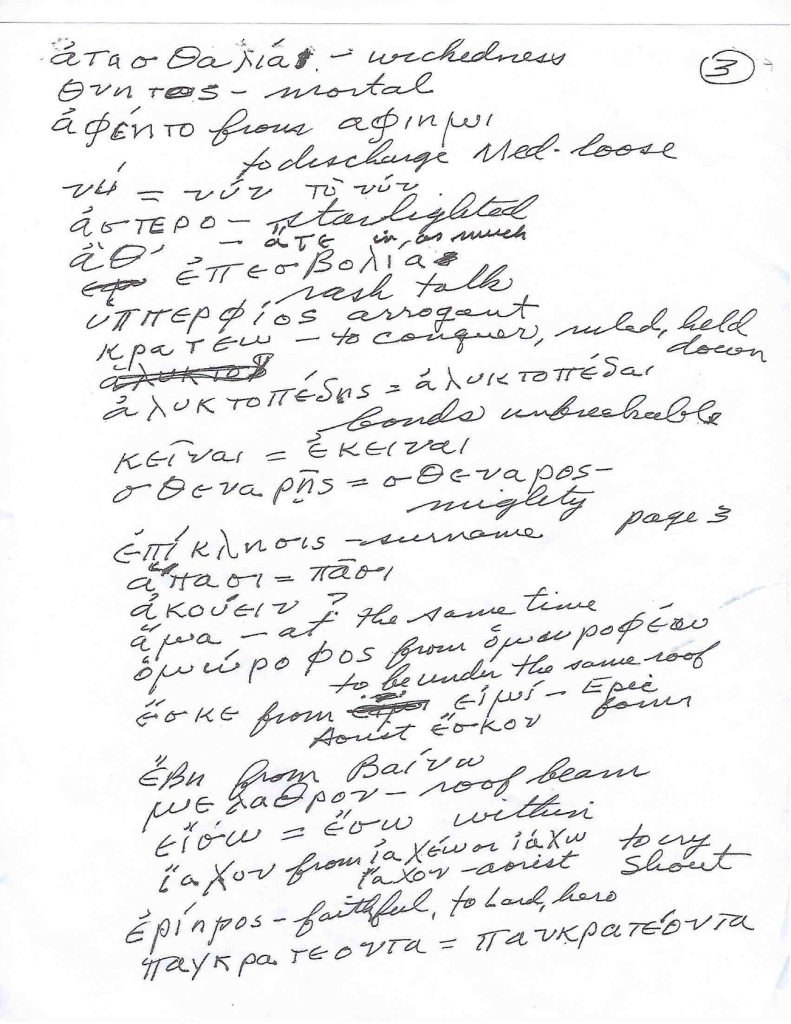 ἀτασθαλία – wickedness
3
θνητος – mortal
ἀφέητο from αφιημι
to discharge Med. loose
νύ = νύν τὸ νύν
ἀστερο – starlighted
ἅθ' – ἅτε in, as much
ἐπεσβολία
rash talk
ὑππερφίος arrogant
κρατεω – to conquer, ruled, held
down
ἀλυκτο
ἀλυκτοπέδης = ἀλυκτοπέδαι
bonds unbreakable
κεῖναι = ἐκειναι
σθεναρῆς = σθεναρος –
mighty
page 3
ἐπίκλησις – surname
ἅπασι = πᾶσι
ἀκούειν ?
ἅμα – at the same time
ὁμώροφος from
to be under the same roof
ἔσκε from εἰμί – Epic
Aorist ἔσκον form
ἔβη from Βαίνω
μελαθρον – roof beam
εἴσω = ἔσω within
ἴαχον from ἰαχέω or ἰάχω to cry
ἴαχον – aorist Shout
ἐρίηρος – faithful, to Lord, hero
παγκρατεοντα = πανκρατέοντα